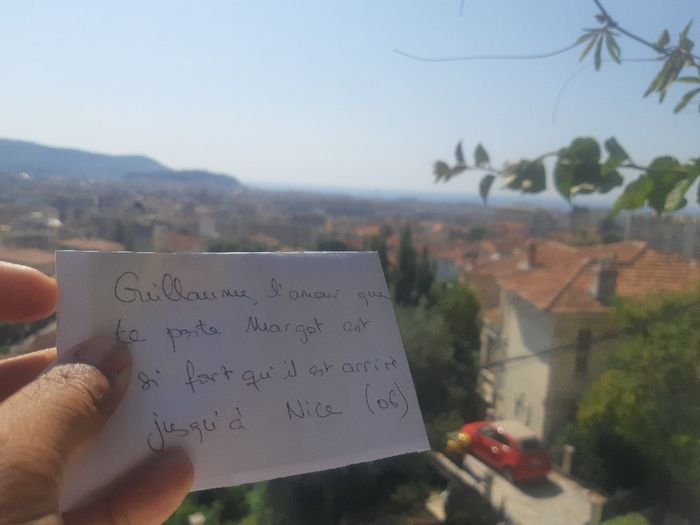 Guillaume, l'amour que
te porte Margot est
si fort qu'il est arrivé
jusqu'à Nice (06)